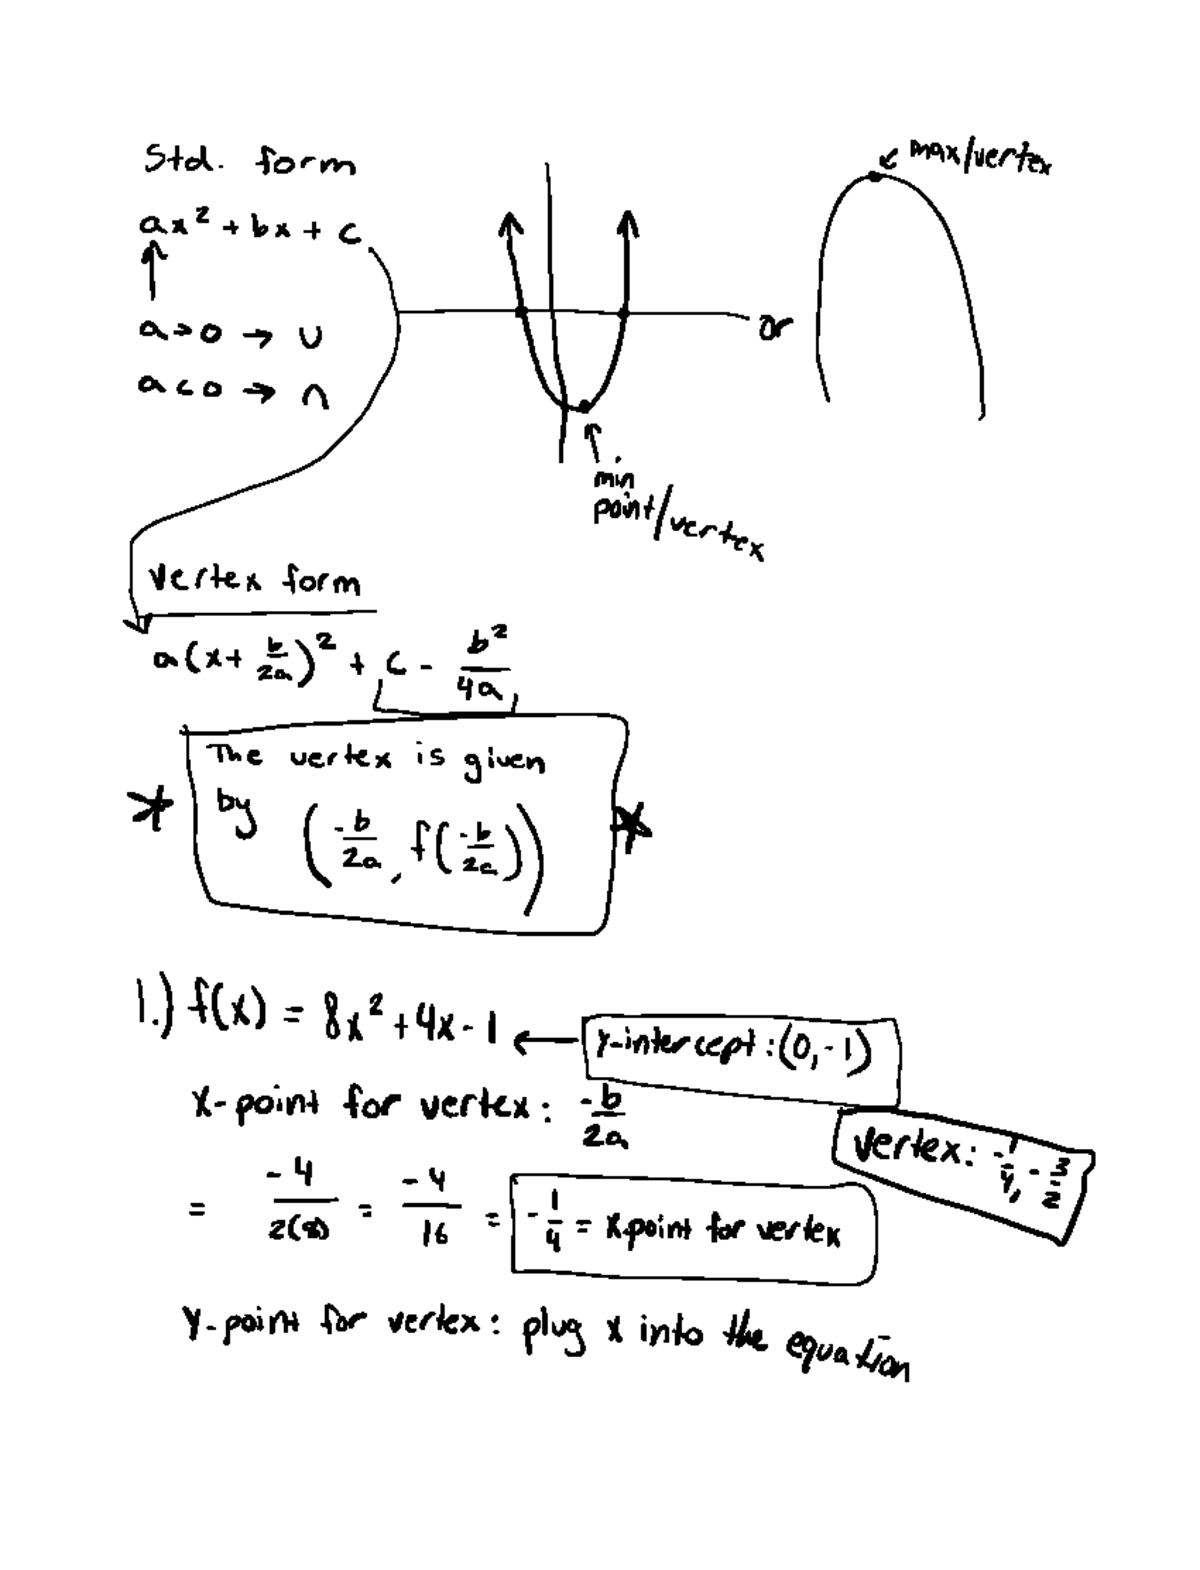 Std. form
ax² + bx + c
a>0 → ∪
a<0 → ∩
or
max/vertex
min
point/vertex
Vertex form
a(x + b/2a)² + c - b²/4a
The vertex is given
by (-b/2a, f(-b/2a))
1.) f(x) = 8x² + 4x - 1
y-intercept: (0, -1)
x-point for vertex: -b/2a
vertex: -1/4, -3/2
= -4/2(8) = -4/16 = -1/4 = x-point for vertex
y-point for vertex: plug x into the equation